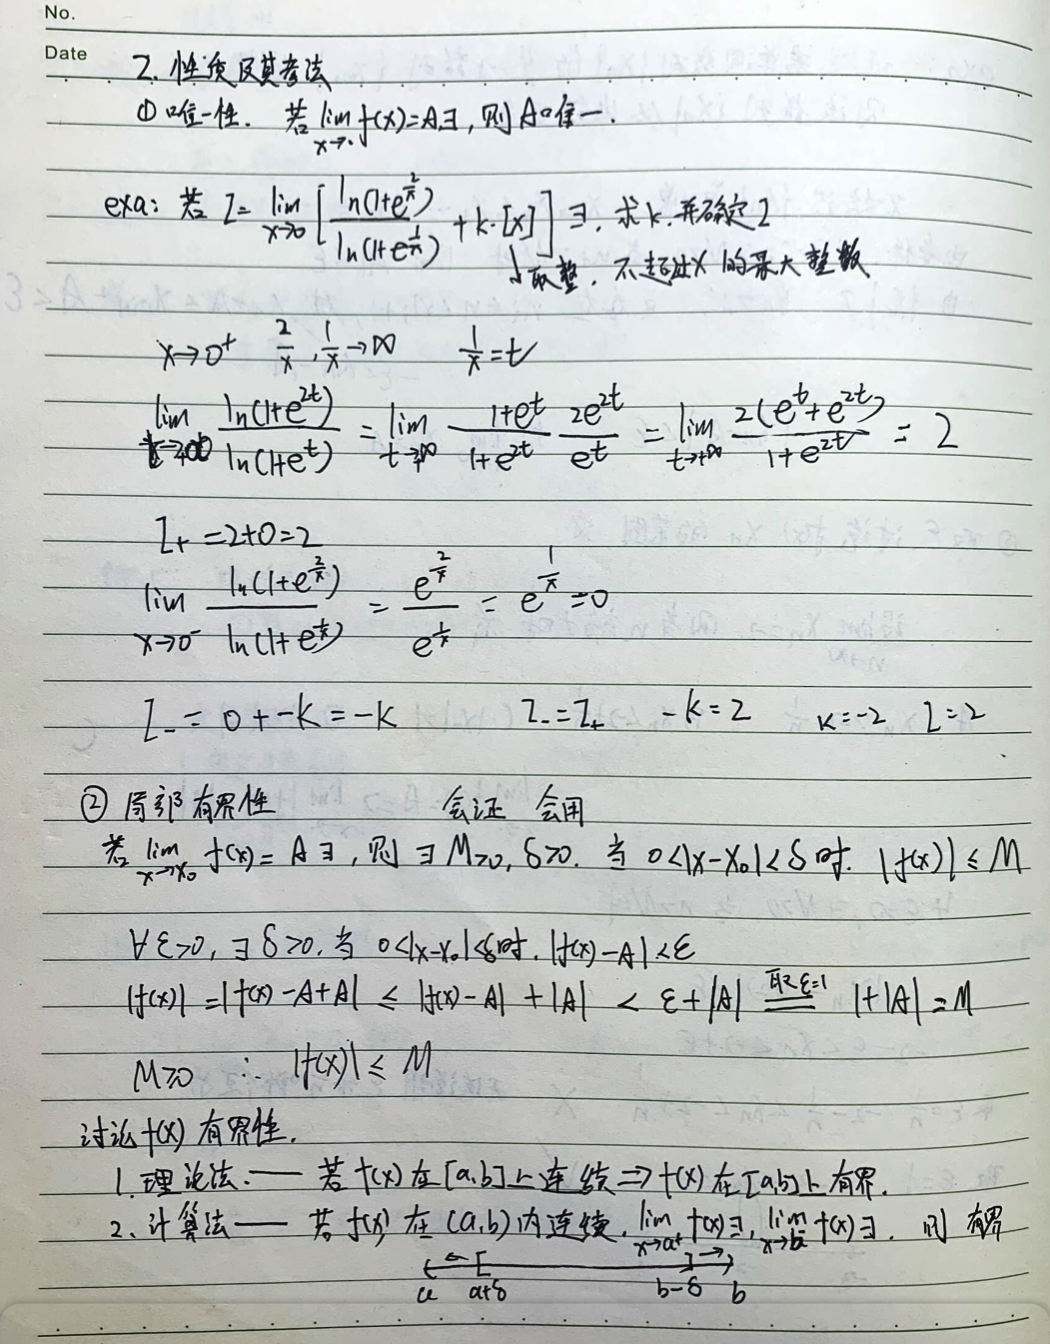 No.
Date
2. 性质及其考法
① 唯一性. 若 lim_{x→·} f(x)=A∃, 则A唯一.
exa: 若 I= lim_{x→0} [ ln(1+e^{2/x}) / ln(1+e^{1/x}) + k·[x] ] ∃. 求k.并确定I
↓取整. 不超过x的最大整数
x→0⁺ 2/x, 1/x →∞ 1/x=t
lim_{t→+∞} ln(1+e^{2t}) / ln(1+e^t) = lim_{t→+∞} (1+e^t)/(1+e^{2t}) · 2e^{2t}/e^t = lim_{t→+∞} 2(e^t+e^{2t}) / (1+e^{2t}) = 2
I₊ =2+0=2
lim_{x→0⁻} ln(1+e^{2/x}) / ln(1+e^{1/x}) = e^{2/x} / e^{1/x} = e^{1/x} =0
I₋ = 0+-k=-k I₋=I₊ -k=2 k=-2 I=2
② 局部有界性 会证 会用
若 lim_{x→x₀} f(x)= A∃, 则 ∃M>0, δ>0. 当 0<|x-x₀|<δ时. |f(x)| ≤ M
∀ε>0, ∃δ>0. 当 0<|x-x₀|<δ时. |f(x)-A|<ε
|f(x)| =|f(x)-A+A| ≤ |f(x)-A| +|A| < ε+|A| 取ε=1 == 1+|A|=M
M>0 ∴ |f(x)| ≤ M
讨论f(x)有界性.
1. 理论法. — 若f(x)在[a,b]上连续⇒f(x)在[a,b]上有界.
2. 计算法 — 若f(x)在(a,b)内连续. lim_{x→a⁺} f(x)∃, lim_{x→b⁻} f(x)∃. 则 有界
a a+δ b-δ b